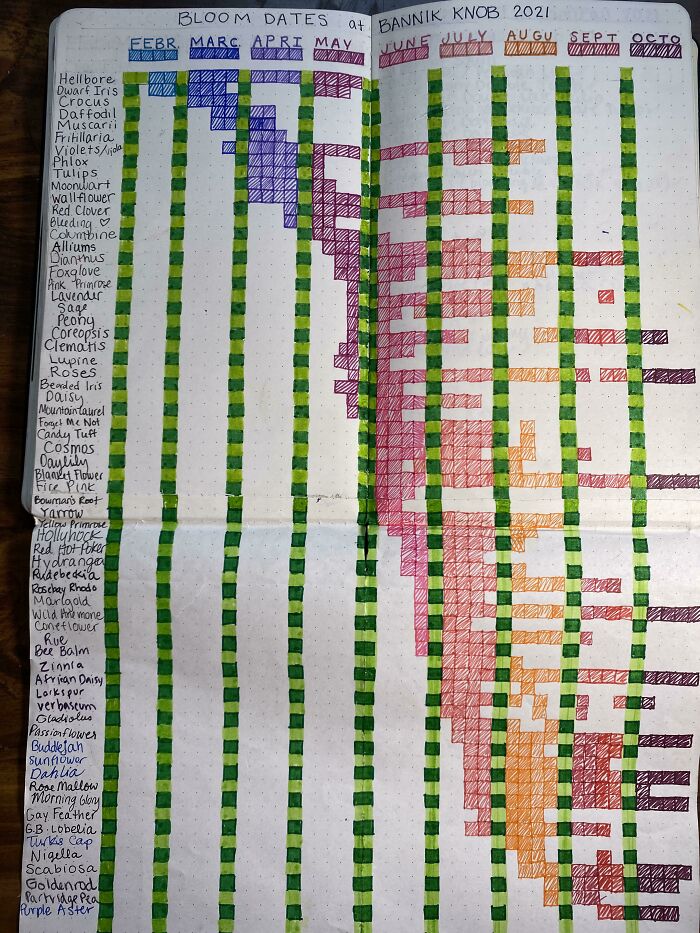 BLOOM DATES at BANNIK KNOB 2021
FEBR. MARC APRI MAY JUNE JULY AUGU SEPT OCTO
Hellbore
Dwarf Iris
Crocus
Daffodil
Muscarii
Fritillaria
Violets/viola
Phlox
Tulips
Moonwart
Wallflower
Red Clover
Bleeding ♡
Columbine
Alliums
Dianthus
Foxglove
Pink Primrose
Lavender
Sage
Peony
Coreopsis
Clematis
Lupine
Roses
Bearded Iris
Daisy
Mountain Laurel
Forget Me Not
Candy Tuft
Cosmos
Daylily
Blanket Flower
Fire Pink
Bowman's Root
Yarrow
Yellow Primrose
Hollyhock
Red Hot Poker
Hydrangea
Rudebeckia
Rosebay Rhodo
Marigold
Wild Anemone
Coneflower
Rue
Bee Balm
Zinnia
African Daisy
Larkspur
verbascum
Gladiolus
Passionflower
Buddlejah
Sunflower
Dahlia
Rose Mallow
Morning Glory
Gay Feather
G.B. Lobelia
Turks Cap
Nigella
Scabiosa
Goldenrod
Partridge Pea
Purple Aster